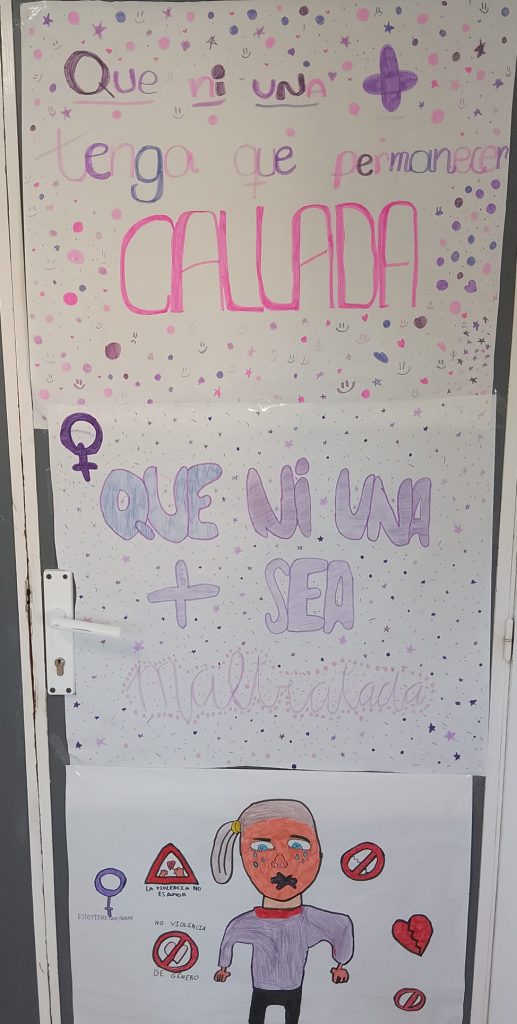 Que ni una +
tenga que permanecer
CALLADA
QUE Ni UNA
+ SEA
maltratada
LA VIOLENCIA NO
ES AMOR
ESTO TIENE QUE PARAR
NO VIOLENCIA
DE GÉNERO